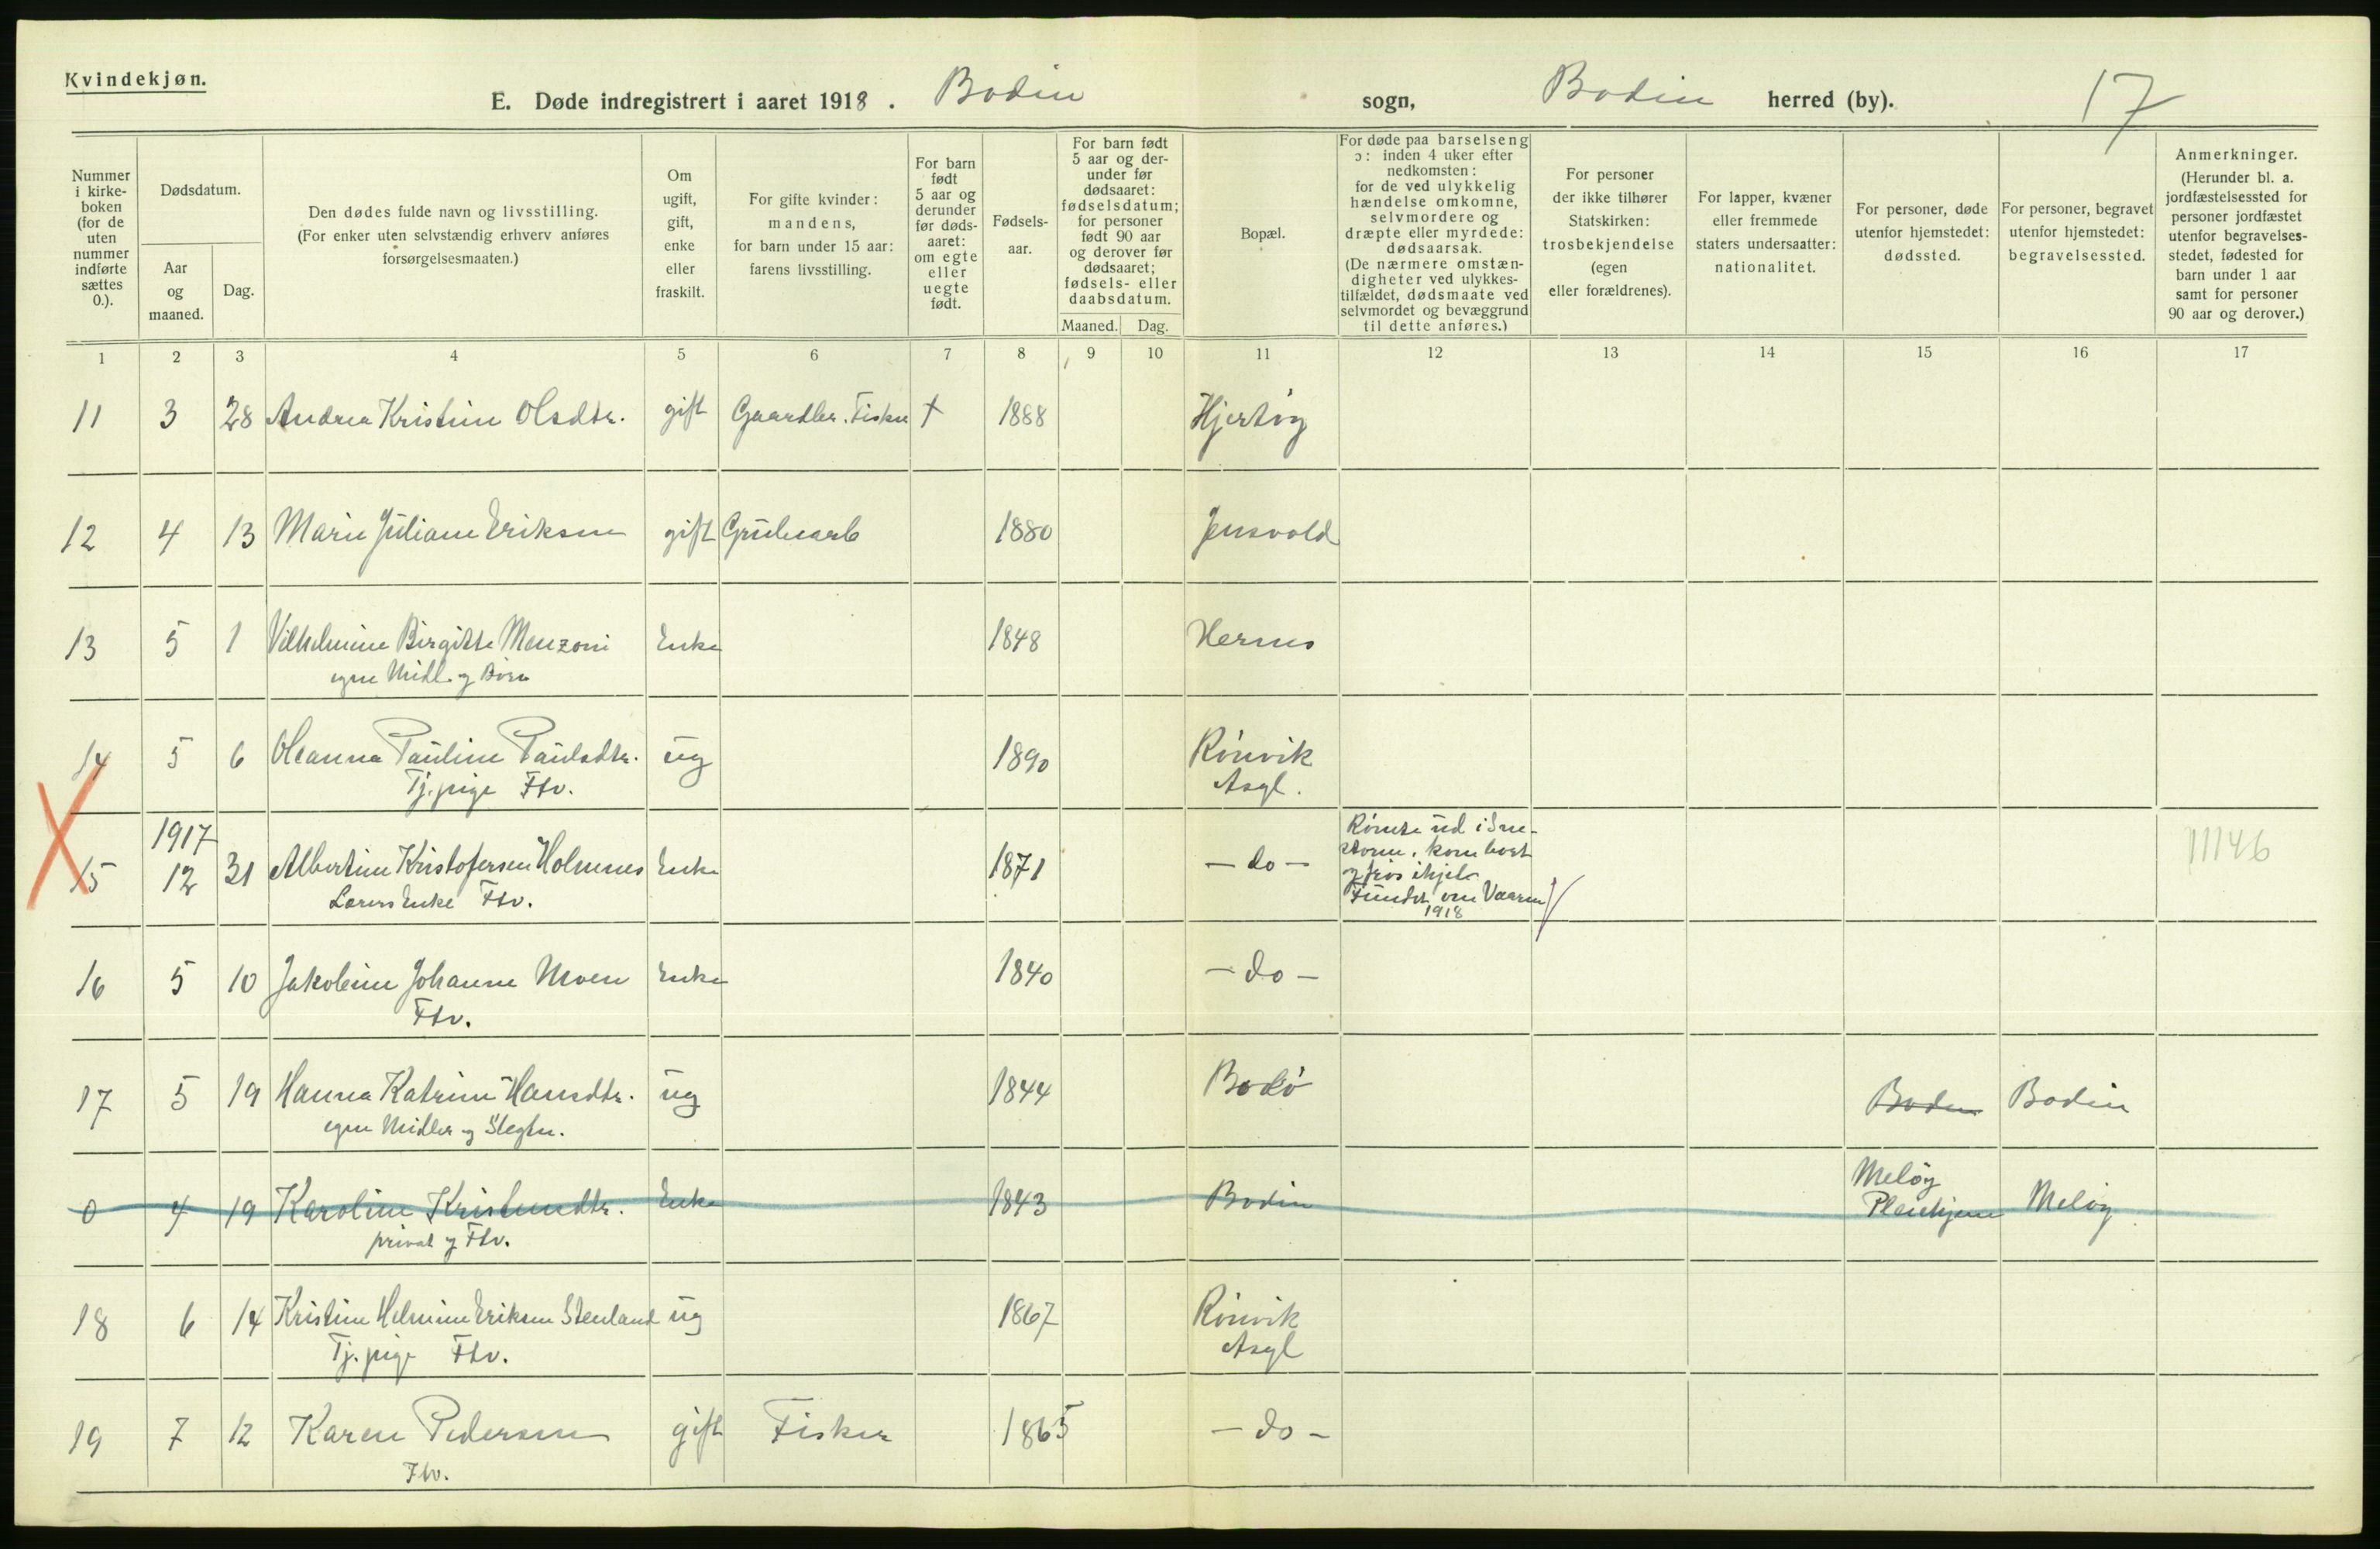 Kvindekjøn.
E. Døde indregistrert i aaret 1918. Bodin sogn, Bodin herred (by). 17
Nummer i kirkeboken (for de uten nummer indførte sættes 0.).
Dødsdatum.
Aar og maaned.
Dag.
Den dødes fulde navn og livsstilling. (For enker uten selvstændig erhverv anføres forsørgelsesmaaten.)
Om ugift, gift, enke eller fraskilt.
For gifte kvinder: mandens, for barn under 15 aar: farens livsstilling.
For barn født 5 aar og derunder før dødsaaret: om egte eller uegte født.
Fødselsaar.
For barn født 5 aar og derunder før dødsaaret: fødselsdatum; for personer født 90 aar og derover før dødsaaret; fødsels- eller daabsdatum.
Maaned. Dag.
Bopæl.
For døde paa barselseng ɔ: inden 4 uker efter nedkomsten: for de ved ulykkelig hændelse omkomne, selvmordere og dræpte eller myrdede: dødsaarsak. (De nærmere omstændigheter ved ulykkestilfældet, dødsmaate ved selvmordet og bevæggrund til dette anføres.)
For personer der ikke tilhører Statskirken: trosbekjendelse (egen eller forældrenes).
For lapper, kvæner eller fremmede staters undersaatter: nationalitet.
For personer, døde utenfor hjemstedet: dødssted.
For personer, begravet utenfor hjemstedet: begravelsessted.
Anmerkninger. (Herunder bl. a. jordfæstelsessted for personer jordfæstet utenfor begravelsesstedet, fødested for barn under 1 aar samt for personer 90 aar og derover.)
1 2 3 4 5 6 7 8 9 10 11 12 13 14 15 16 17
11 3 28 Andrea Kristine Olsdtr. gift Gaardbr. Fisker † 1888 Hjertøy
12 4 13 Marie Juliane Eriksen gift Grubearb 1880 Jensvold
13 5 1 Vilhelmine Birgitte Menzoni Enke 1848 Hernes
egne Midl. og Børn
14 5 6 Oleanna Pauline Paulsdtr. ug 1890 Rønvik
Tj.pige Ftv. Asyl.
1917
15 12 31 Albertine Kristofersen Holmnes Enke 1871 – do – Rømte ud i Sne-
storm, kom bort
og frøs ihjel.
Fundet om Vaaren
1918
11146
Lærers Enke Ftv.
16 5 10 Jakobine Johanne Moen Enke 1840 – do –
Ftv.
17 5 19 Hanna Katrine Hansdtr. ug 1844 Bodø Bodin Bodin
egne Midler og Slegtn.
0 4 19 Karoline Kristensdtr. Enke 1843 Bodin Meløy
Pleiehjem Meløy
privat og Ftv.
18 6 14 Kristine Helmine Eriksen Stenland ug 1867 Rønvik
Tj.pige Ftv. Asyl
19 7 12 Karen Pedersen gift Fisker 1865 – do –
Ftv.